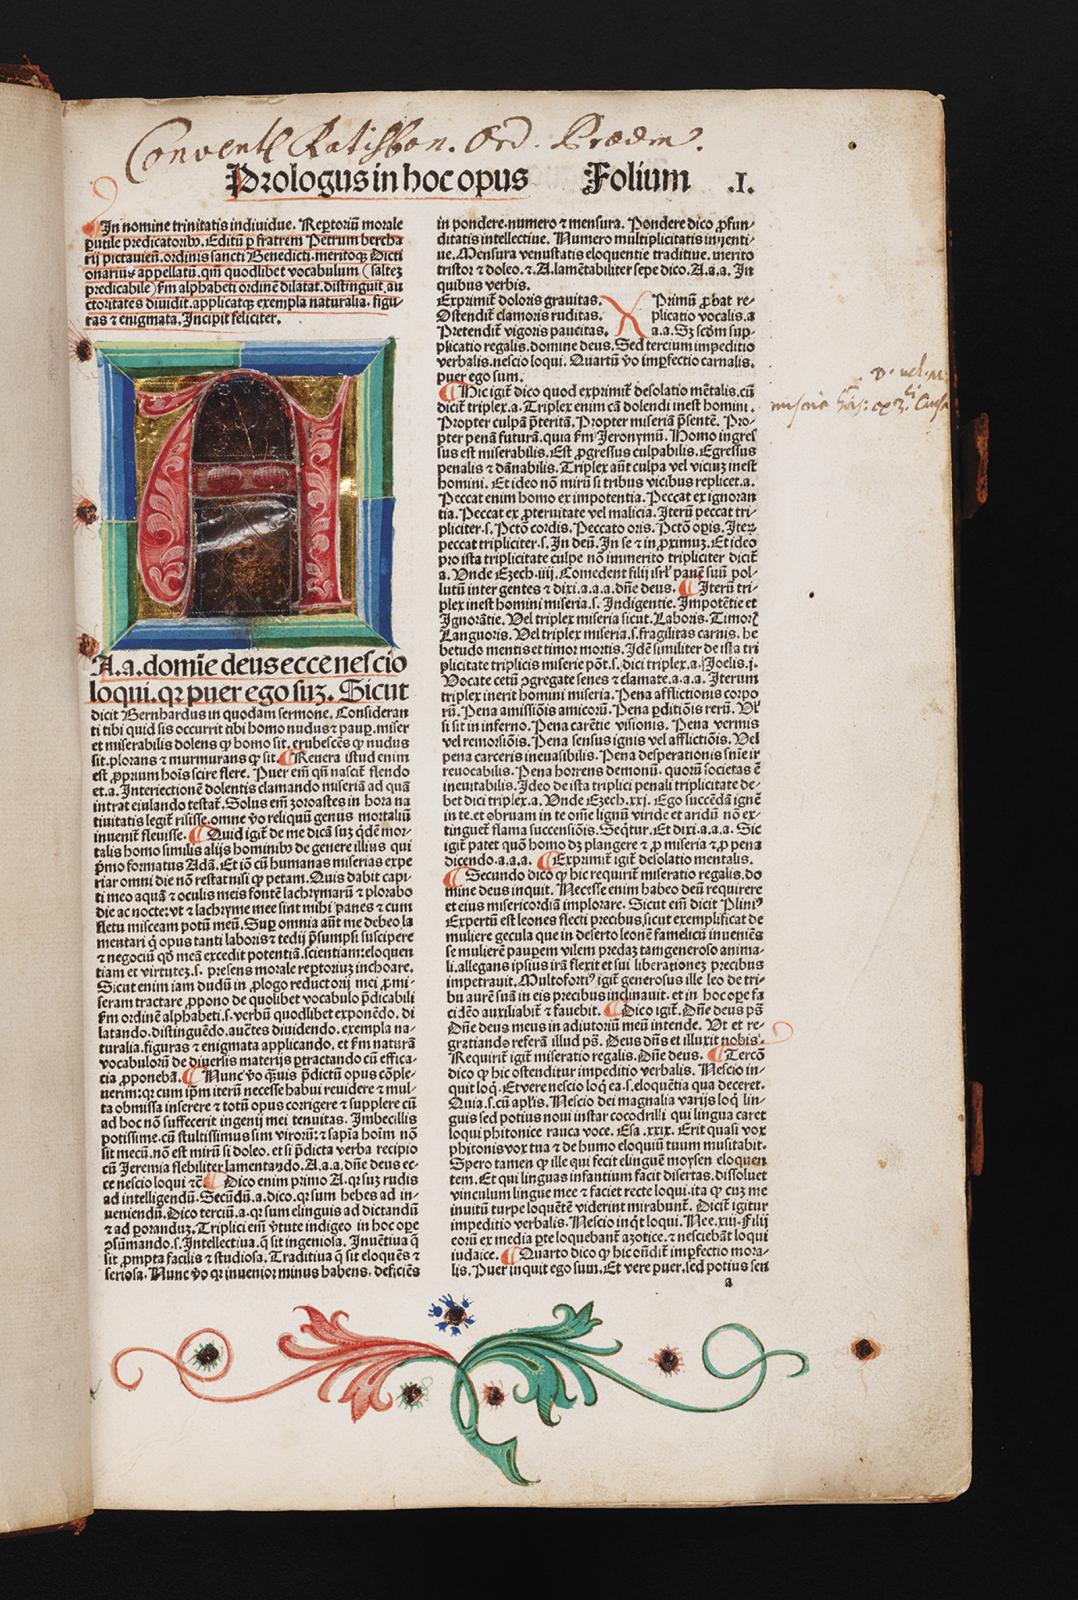 Conventꝰ Ratisbon. Ord. Prædmꝰ.
Prologus in hoc opus Folium .I.
In nomine trinitatis individue. Reptoriū morale
ꝑutile predicatoribꝰ. Editū ꝑ fratrem Petrum bercha
rij pictavieñ. ordinis sancti Benedicti. meritoqꝫ Dicti
onarius appellatū. qm̄ quodlibet vocabulum (saltez
predicabile) ẜm alphabeti ordinē dilatat. distinguit. au
ctoritates dividit. applicatqꝫ exempla naturalia. figu
ras ⁊ enigmata. Incipit feliciter.
A.a. domīe deus ecce nescio
loqui. qꝛ puer ego suꝫ. Sicut
dicit Bernhardus in quodam sermone. Consideran
ti tibi quid sis occurrit tibi homo nudus ⁊ pauꝑ. miser
et miserabilis dolens ꝙ homo sit. erubescēs ꝙ nudus
sit. plorans ⁊ murmurans ꝙ sit. Revera istud enim
est ꝓprium hoīs scire flere. Puer em̄ qn̄ nascit̄ flendo
et .a. Interiectionē dolentis clamando miseriā ad quā
intrat eiulando testat̄. Solus em̄ zoroastes in hora na
tivitatis legit̄ risisse. omne ṽo reliquū genus mortaliū
invenit̄ flevisse. Quid igit̄ de me dicā suꝫ qdē mor-
talis homo similis alijs hominibꝰ de genere illius qui
pͥmo formatus Adā. Et iō cū humanas miserias expe
riar omni die nō restat nisi ꝙ petam. Quis dabit capi-
ti meo aquā ⁊ oculis meis fontē lachrymarū ⁊ plorabo
die ac nocte: vt ⁊ lachryme mee sint mihi panes ⁊ cum
fletu misceam potū meū. Suꝑ omnia aūt me debeo la
mentari ꝙ opus tanti laboris ⁊ tedij p̄sumpsi suscipere
⁊ negociū qd̄ meā excedit potentiā. scientiam: eloquen
tiam et virtuteꝫ. s. presens morale reꝑtoriuꝫ inchoare.
Sicut enim iam dudū in ꝓlogo reductorij mei ꝓmi-
seram tractare ꝓpono de quolibet vocabulo p̄dicabili
ẜm ordinē alphabeti. s. verbū quodlibet exponēdo. di
latando. distinguēdo. auc̄tes dividendo. exempla na-
turalia. figuras ⁊ enigmata applicando. et ẜm naturā
vocabulorū de diversis materijs ꝑtractando cū effica-
cia ꝓponebā. Nunc ṽo qꝫvis p̄dictū opus cōple-
verim: qꝛ cum ip̄m iterū necesse habui revidere ⁊ mul-
ta obmissa inserere ⁊ totū opus corrigere ⁊ supplere cū
ad hoc nō suffecerit ingenij mei tenuitas. Imbecillis
potissime. cū stultissimus sim virorū: ⁊ sapīa hoīm nō
sit mecū. nō est mirū si doleo. et si p̄dicta verba recipio
cū Jeremia flebiliter lamentando. A.a.a. dn̄e deus ec-
ce nescio loqui ⁊c̄ Dico enim primo A. qꝛ suꝫ rudis
ad intelligendū. Secūdū .a. dico. qꝛ sum hebes ad in-
veniendū. Dico terciū .a. qꝛ sum elinguis ad dictandū
⁊ ad ꝑorandꝫ. Triplici em̄ v̓tute indigeo in hoc oꝑe
ꝯsūmando. s. Intellectiva. ꝙ sit ingeniosa. Inventiva ꝙ
sit ꝓmpta facilis ⁊ studiosa. Traditiva ꝙ sit eloquēs ⁊
seriosa. Nunc ṽo qꝛ invenior minus habens. deficiēs
in pondere. numero ⁊ mensura. Pondere dico ꝓfun-
ditatis intellective. Numero multiplicitatis inventi-
ve. Mensura venustatis eloquentie traditive. merito
tristor ⁊ doleo. ⁊ A. lamētabiliter sepe dico. A.a.a. In
quibus verbis.
Exprimit̄ doloris gravitas. Primū ꝓbat re-
Ostendit̄ clamoris ruditas. plicatio vocalis. a
Pretendit̄ vigoris paucitas. a.a. Sꝫ scd̄m sup-
plicatio regalis. domine deus. Sed tercium impeditio
verbalis. nescio loqui. Quartū ṽo imꝑfectio carnalis.
puer ego sum.
Hic igit̄ dico quod exprimit̄ desolatio mētalis. cū
dicit̄ triplex .a. Triplex enim cā dolendi inest homini.
Propter culpā p̄teritā. Propter miseriā p̄sentē. Pro-
pter penā futurā. qua ẜm Jeronymū. Homo ingres
sus est miserabilis. Est ꝓgressus culpabilis. Egressus
penalis ⁊ dānabilis. Triplex aūt culpa vel viciuꝫ inest
homini. Et ideo nō mirū si tribus vicibus replicet̄ .a.
Peccat enim homo ex impotentia. Peccat ex ignoran
tia. Peccat ex ꝓtervitate vel malicia. Iterū peccat tri-
pliciter. s. Pctō cordis. Peccato oris. Pctō oꝑis. Iteꝝ
peccat tripliciter. s. In deū. In se ⁊ in ꝓximuꝫ. Et ideo
pro ista triplicitate culpe nō immerito tripliciter dicit̄
a. Vnde Ezech. iiij. Comedent filij isrl̄ panē suū pol-
lutū inter gentes ⁊ dixi. a.a.a. dn̄e deus. Iterū tri-
plex inest homini miseria. s. Indigentie. Impotētie et
Ignorātie. Vel triplex miseria sicut. Laboris. Timorꝭ
Languoris. Vel triplex miseria. s. fragilitas carnis. he
betudo mentis et timor mortis. Idē similiter de ista tri
plicitate triplicis miserie pōt. s. dici triplex .a. Joelis. j.
Vocate cetū ꝯgregate senes ⁊ clamate. a.a.a. Iterum
triplex inerit homini miseria. Pena afflictionis corpo
rū. Pena amissiōis amicorū. Pena ꝑditiōis rerū. Vl̓
si sit in inferno. Pena carētie visionis. Pena vermis
vel remorsiōis. Pena sensus ignis vel afflictiōis. Vel
pena carceris inevasibilis. Pena desperationis sine ir
revocabilis. Pena horrens demonū. quorū societas ē
inevitabilis. Ideo de ista triplici penali triplicitate de-
bet dici triplex .a. Vnde Ezech. xxj. Ego succēdā ignē
in te. et obruam in te om̄e lignū viride et aridū nō ex-
tinguet̄ flama succensiōis. Seqt̄ur. Et dixi. a.a.a. Sic
igit̄ patet quō homo dꝫ plangere ⁊ ꝓ miseria ⁊ ꝓ pena
dicendo. a.a.a. Exprimit̄ igit̄ desolatio mentalis.
Secundo dico ꝙ hic requirit̄ miseratio regalis. do
mine deus inquit. Necesse enim habeo deū requirere
et eius misericordiā implorare. Sicut em̄ dicit Pliniꝰ
Expertū est leones flecti precibus. sicut exemplificat de
muliere gecula que in deserto leonē famelicū inveniēs
se mulierē pauꝑem vilem predaꝫ tam generoso anima-
li. allegans ipsius irā flexit et sui liberationeꝫ precibus
impetravit. Multofortiꝰ igit̄ generosus ille leo de tri-
bu aurē suā in eis precibus inclinavit. et in hoc oꝑe fa
ciēdo auxiliabit̄ ⁊ favebit. Dico igit̄. Dn̄e deus p̄s
Dn̄e deus meus in adiutoriū meū intende. Vt et re-
gratiando referā illud ps̄. Deus dn̄s et illuxit nobis.
Requirit̄ igit̄ miseratio regalis. Dn̄e deus. Tercō
dico ꝙ hic ostenditur impeditio verbalis. Nescio in-
quit loqͥ. Et vere nescio loqͥ ea. s. eloquētia qua deceret.
Quia. s. cū apl̄is. Nescio dei magnalia varijs loqͥ lin-
guis sed potius novi instar cocodrilli qui lingua caret
loqui phitonice rauca voce. Esa. xxix. Erit quasi vox
phitonis vox tua ⁊ de humo eloquiū tuum musitabit.
Spero tamen ꝙ ille qui fecit elinguē moysen eloquen
tem. Et qui linguas infantium facit disertas. dissolvet
vinculum lingue mee ⁊ faciet recte loqui. ita ꝙ cuꝫ me
invitū turpe loquētē viderint mirabunt̄. Dicit̄ igitur
impeditio verbalis. Nescio inqͥt loqui. Nee. xiij. Filij
eorū ex media ꝑte loquebant̄ azotice. ⁊ nesciebāt loqui
iudaice. Quarto dico ꝙ hic on̄dit̄ imꝑfectio mora-
lis. Puer inquit ego sum. Et vere puer. sed potius sen
a